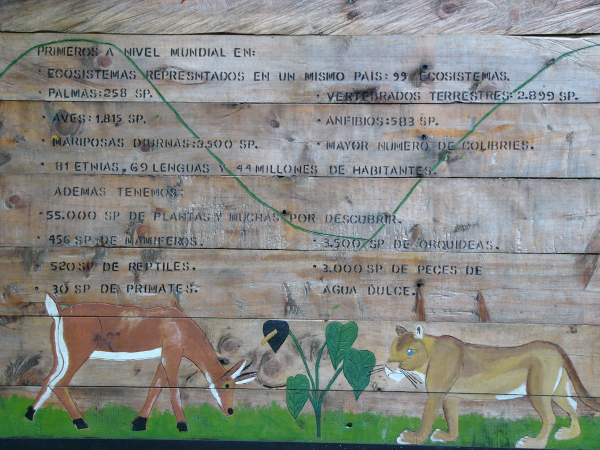 PRIMEROS A NIVEL MUNDIAL EN:
• ECOSISTEMAS REPRESNTADOS EN UN MISMO PAIS: 99 ECOSISTEMAS.
• PALMAS: 258 SP.
• VERTEBRADOS TERRESTRES: 2.899 SP.
• AVES: 1.815 SP.
• ANFIBIOS: 583 SP.
• MARIPOSAS DIURNAS: 3.500 SP.
• MAYOR NUMERO DE COLIBRIES.
• 81 ETNIAS, 69 LENGUAS Y 44 MILLONES DE HABITANTES.
ADEMAS TENEMOS:
• 55.000 SP DE PLANTAS Y MUCHAS POR DESCUBRIR.
• 456 SP DE MAMIFEROS.
• 3.500 SP DE ORQUIDEAS.
• 520 SP DE REPTILES.
• 3.000 SP DE PECES DE
• 30 SP DE PRIMATES.
AGUA DULCE.